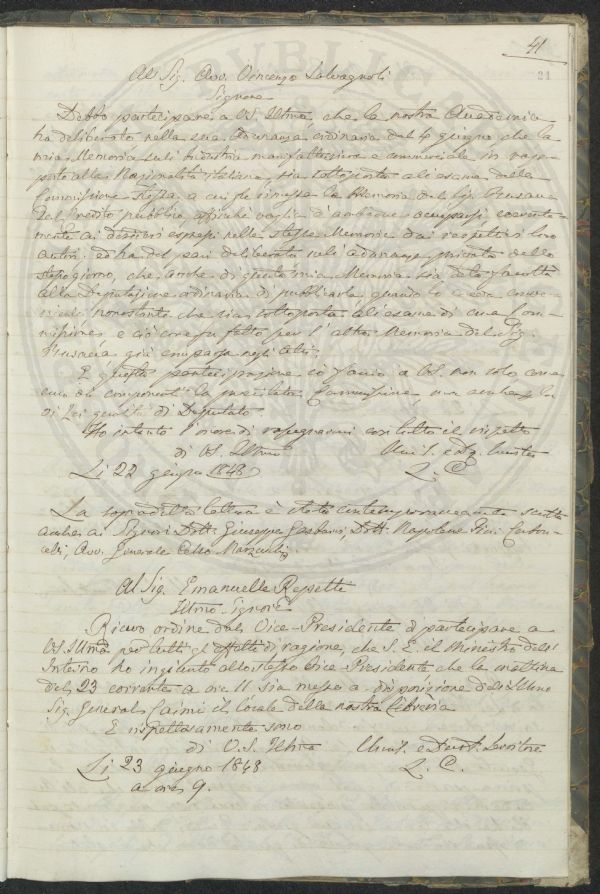 41
21
Al Sig. Avv. Vincenzo Salvagnoli
Signore
Debbo partecipare a VS. Illma, che la nostra Accademia
ha deliberato nella sua Adunanza ordinaria del 4 giugno che la
mia Memoria sull'industria manifatturiera e commerciale in rap-
porto alla Nazionalità italiana, sia sottoposta all'esame della
Commissione stessa, a cui gli rimesse la Memoria del Sig.
del Credito pubblico, affinché voglia d'ambedue occuparsi coerente-
mente ai desideri espressi nelle stesse Memorie dai respettivi loro
autori. ed ha del pari deliberato nell'adunanza privata dello
stesso giorno, che anche di questa mia Memoria sia data facoltà
alla Deputazione ordinaria di pubblicarla, quando lo creda conve-
niente nonostante che sia sottoposta all'esame di una Com-
missione e ciò come fu fatto per l'altra Memoria del Sig.
già negli Atti.
E questa partecipazione io faccio a VS. non solo come
uno dei componenti la Commissione ma anche per la
di Lei qualità di Deputato.
Ho intanto l'onore di rassegnarmi con tutto il rispetto
di VS. Illma
Li 22 giugno 1848
L. C.
La sopradetta lettera è stata contemporaneamente scritta
anche ai Signori Dott. Giuseppe Dott. Napoleone Pini
Avv. Generale Celso Marzucchi
Al Sig. Emanuelle Repetti
Illmo Signore
Ricevo ordine dal Vice-Presidente di partecipare a
VS. Illma per tutti gl'effetti di ragione, che S. E. il Ministro dell'
Interno ha ingiunto allo stesso Vice-Presidente che la mattina
del 23 corrente a ore 11 sia messo a disposizione dell'Illmo
Sig. Generale il locale della nostra Libreria
E rispettosamente sono
di V. S. Illma Umil. e Devot. Servitore
Li 23 giugno 1848 L. C.
a ore 9.